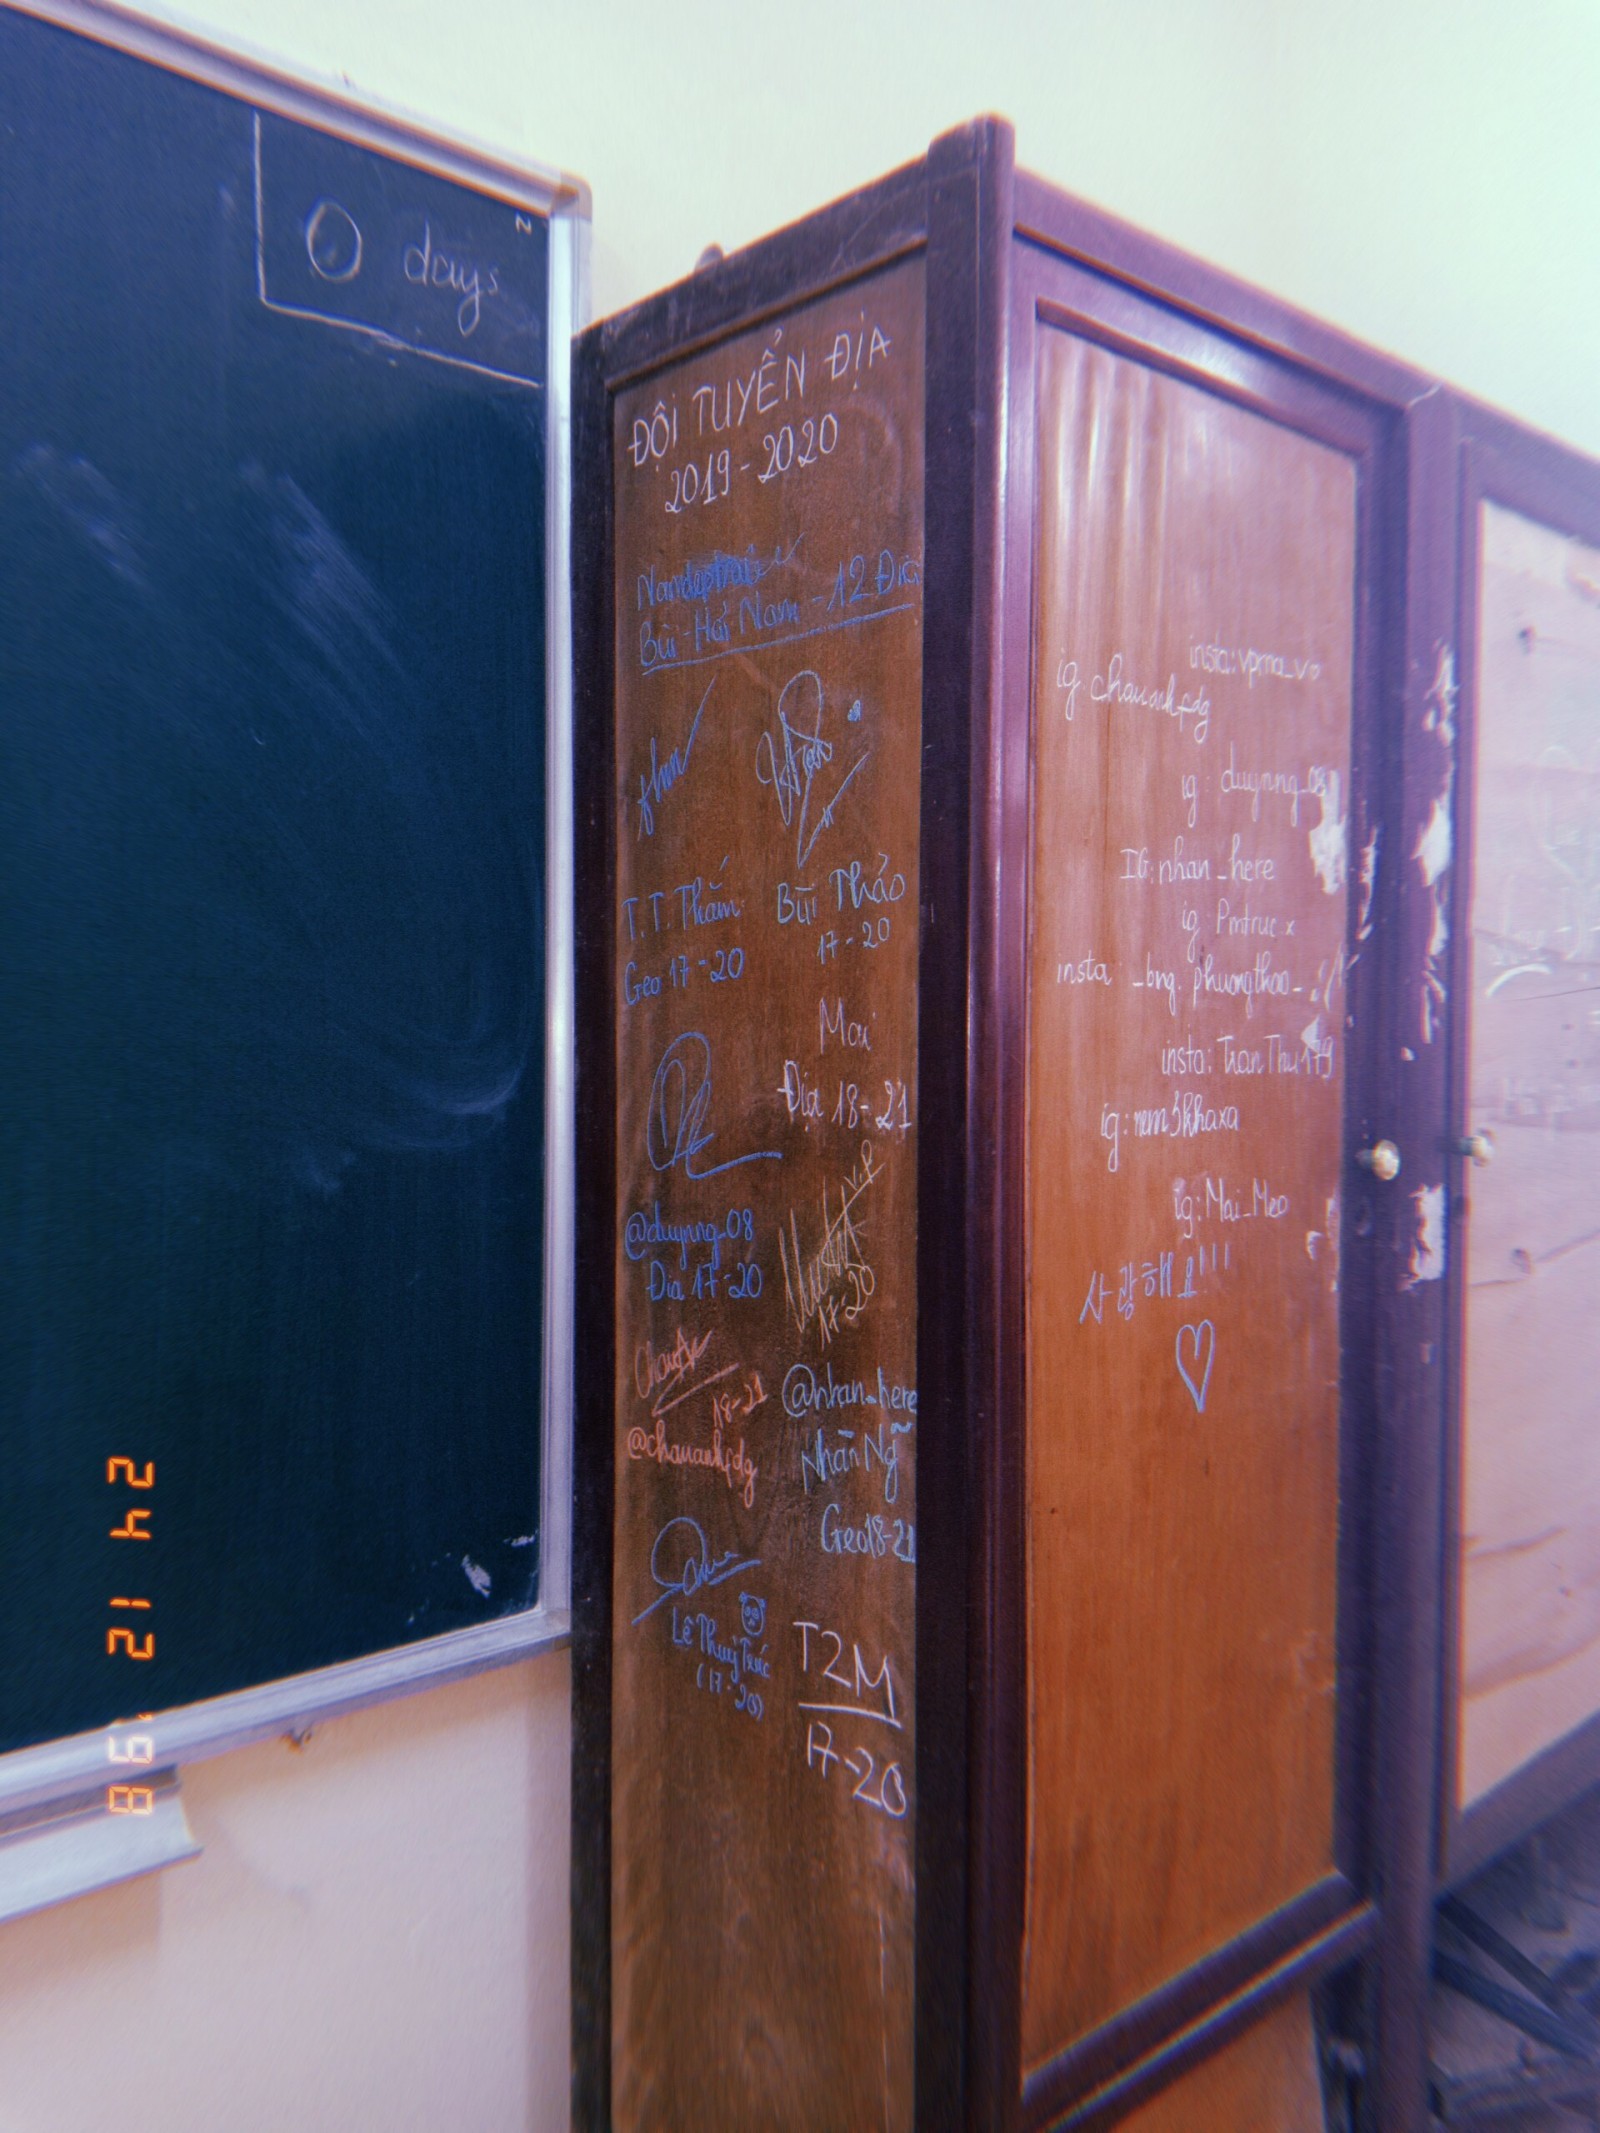 0 days
ĐỘI TUYỂN ĐỊA
2019-2020
Bùi Hải Nam - 12 Địa
T.T. Thắm
Geo 17-20
Bùi Thảo
17-20
Mai
Địa 18-21
@duynng_08
Địa 17-20
V.P
17-20
18-21
@chauanhfdg
@nhan_here
Nhân Ng
Geo 18-21
Lê Thuỳ Trúc
(17-20)
T2M
17-20
insta: vpma_vo
ig. chauanhfdg
ig: duynng_08
IG: nhan_here
ig Pmtruc.x
insta _bng.phuongthao_
insta: TranThu179
ig: nem3khaxa
ig: Mai_Meo
사랑해요!!!
24 12 '98